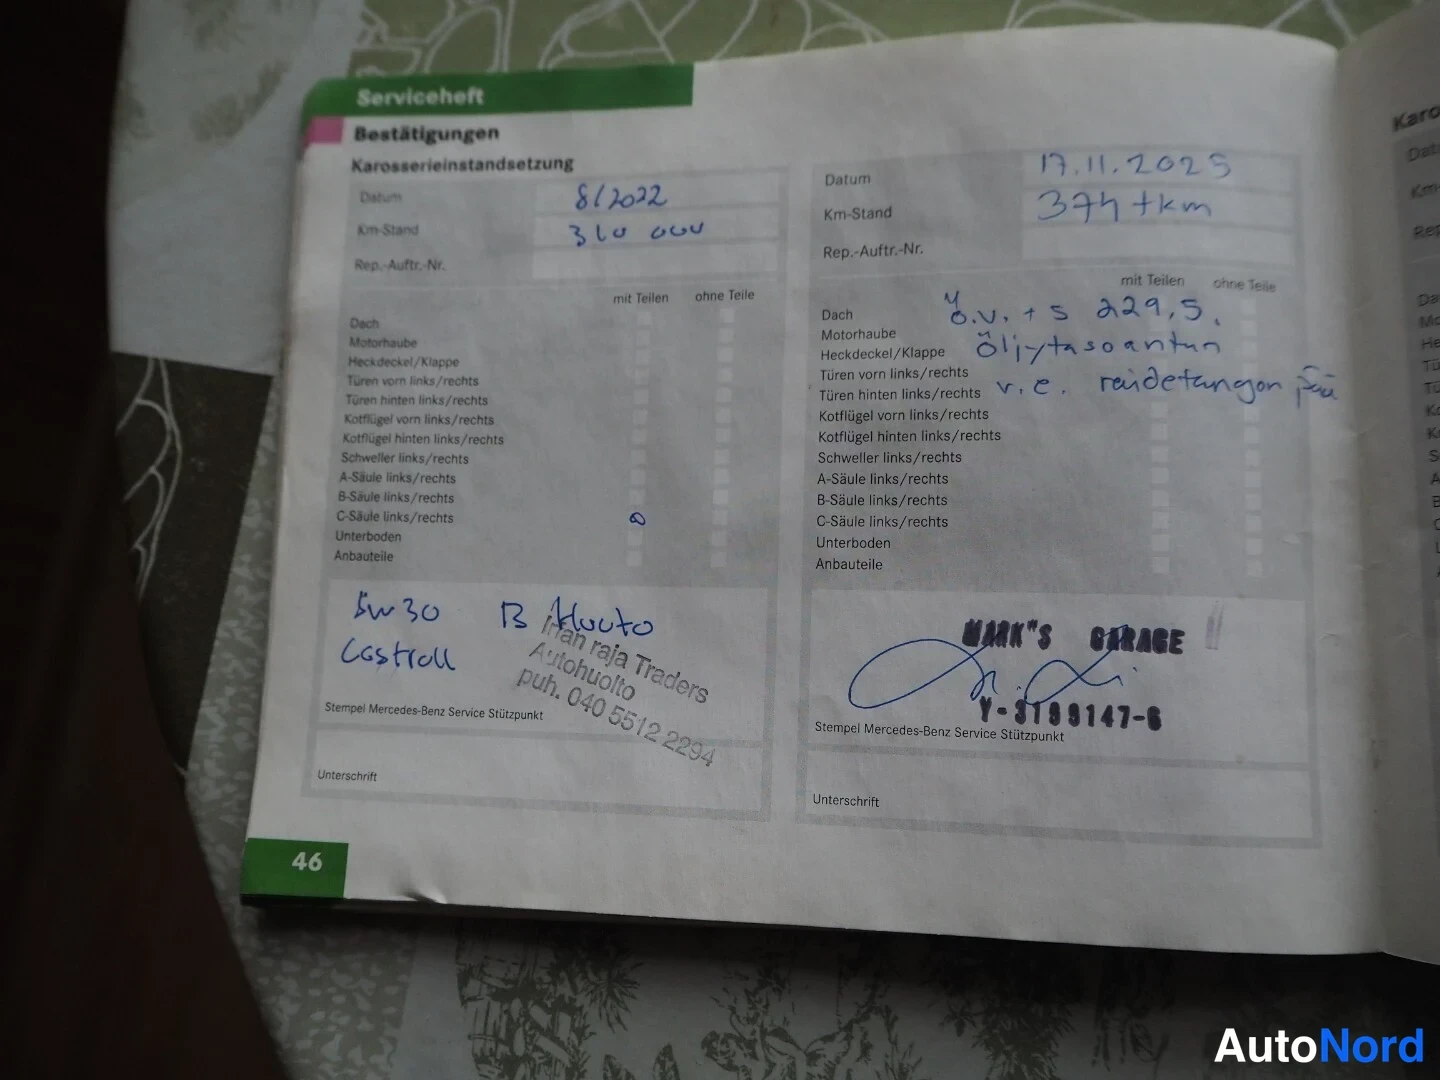 Serviceheft
Bestätigungen
Karosserieinstandsetzung
Datum 8/2022
Km-Stand 310 000
Rep.-Auftr.-Nr.
mit Teilen ohne Teile
Dach
Motorhaube
Heckdeckel/Klappe
Türen vorn links/rechts
Türen hinten links/rechts
Kotflügel vorn links/rechts
Kotflügel hinten links/rechts
Schweller links/rechts
A-Säule links/rechts
B-Säule links/rechts
C-Säule links/rechts
Unterboden
Anbauteile
5w30 B Huolto
Castroll
Irfan raja Traders
Autohuolto
puh. 040 5512 2294
Stempel Mercedes-Benz Service Stützpunkt
Unterschrift
46
Datum 17.11.2025
Km-Stand 374 tkm
Rep.-Auftr.-Nr.
mit Teilen ohne Teile
Dach ö.v. + s 229,5,
Motorhaube
Heckdeckel/Klappe öljytasoantun
Türen vorn links/rechts
Türen hinten links/rechts v.e. raidetangon pää
Kotflügel vorn links/rechts
Kotflügel hinten links/rechts
Schweller links/rechts
A-Säule links/rechts
B-Säule links/rechts
C-Säule links/rechts
Unterboden
Anbauteile
MARK"S GARAGE
Y-3199147-6
Stempel Mercedes-Benz Service Stützpunkt
Unterschrift
AutoNord